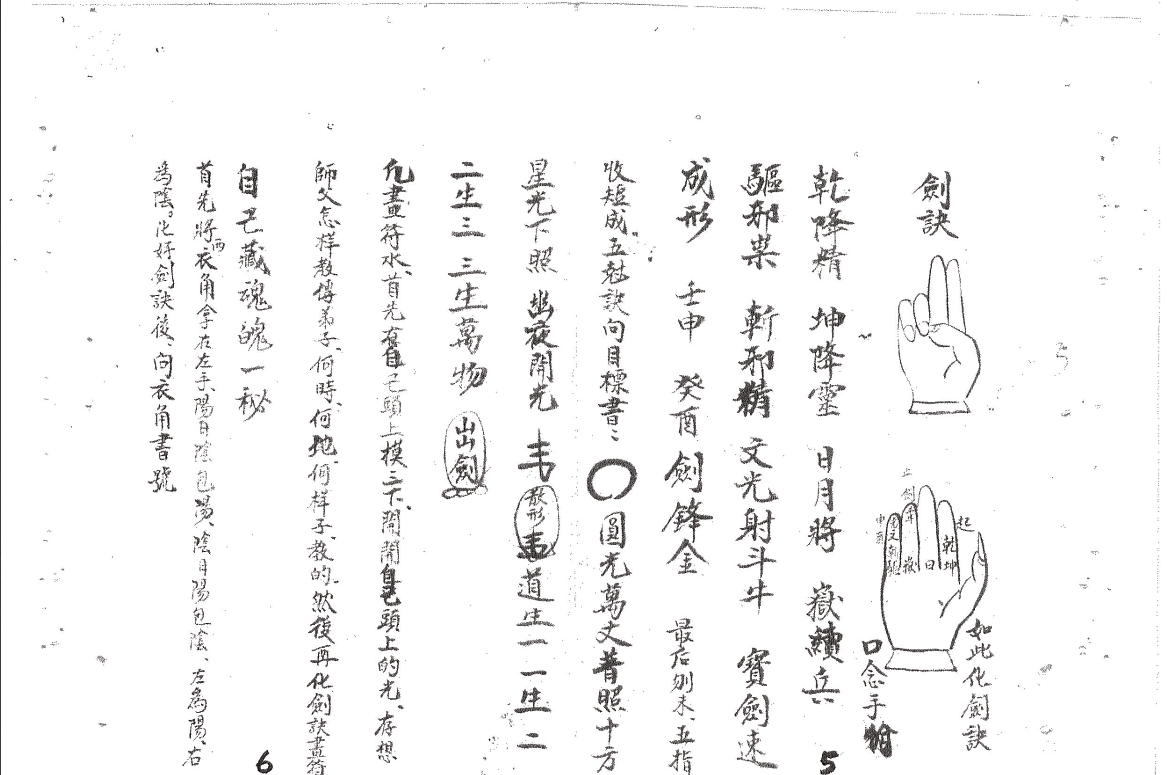 劍訣
止
劍
井
申酉
嶽
日
乾坤
起
如此化劍訣
口念手掐
乾降精 坤降靈 日月將 嶽瀆兵
驅邪祟 斬邪精 文光射斗牛 寶劍速
成形 壬申 癸酉 劍鋒金 最后刎未、五指
收短成五尅訣向目標書:
圓光萬丈普照十方
星光下照 幽夜開光 散形 道生一 一生二
二生三 三生萬物 劍
凡畫符水、首先在自己頭上模三下、開開自己頭上的光、存想
師父怎样教傳弟子、何時、何地、何样子、教的、然後再化劍訣畫符
自己藏魂魄一秘
首先將两衣角拿在左手、陽日陰包陽、陰日陽包陰、左為陽、右
為陰。化好劍訣後、向衣角書號
5
6